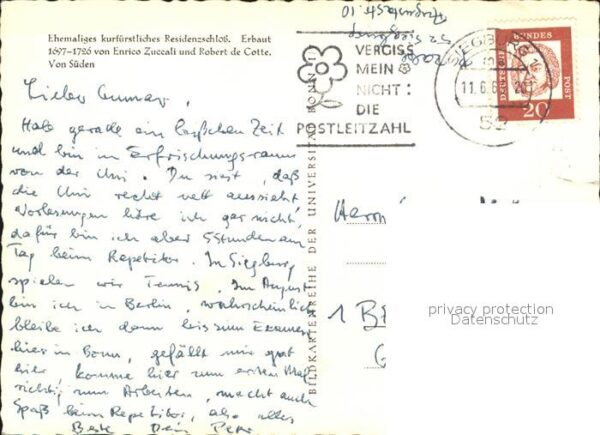 Ehemaliges kurfürstliches Residenzschloß. Erbaut
1697–1726 von Enrico Zuccali und Robert de Cotte.
Von Süden
Lieber Gunnar,
Habe gerade ein bißchen Zeit
und bin im Erfrischungsraum
von der Uni. Du siest, daß
die Uni recht nett aussieht.
Vorlesungen höre ich gar nicht,
dafür bin ich aber 5 Stunden am
Tag beim Repetitor. In Siegburg
spielen wir Tennis. Im August
bin ich in Berlin, wahrscheinlich
bleibe ich dann bis zum Examen
hier in Bonn, gefällt mir gut
hier komme hier zum ersten Mal
richtig zum Arbeiten, macht auch
Spaß beim Repetitor, also alles
Beste Dein Peter
BILDKARTENREIHE DER UNIVERSITÄT BONN
52 Siegburg
VERGISS
MEIN
NICHT:
DIE
POSTLEITZAHL
SIEGBURG
11.6.6
20
52
DEUTSCHE BUNDESPOST
20
Herrn
1 BE
privacy protection
Datenschutz